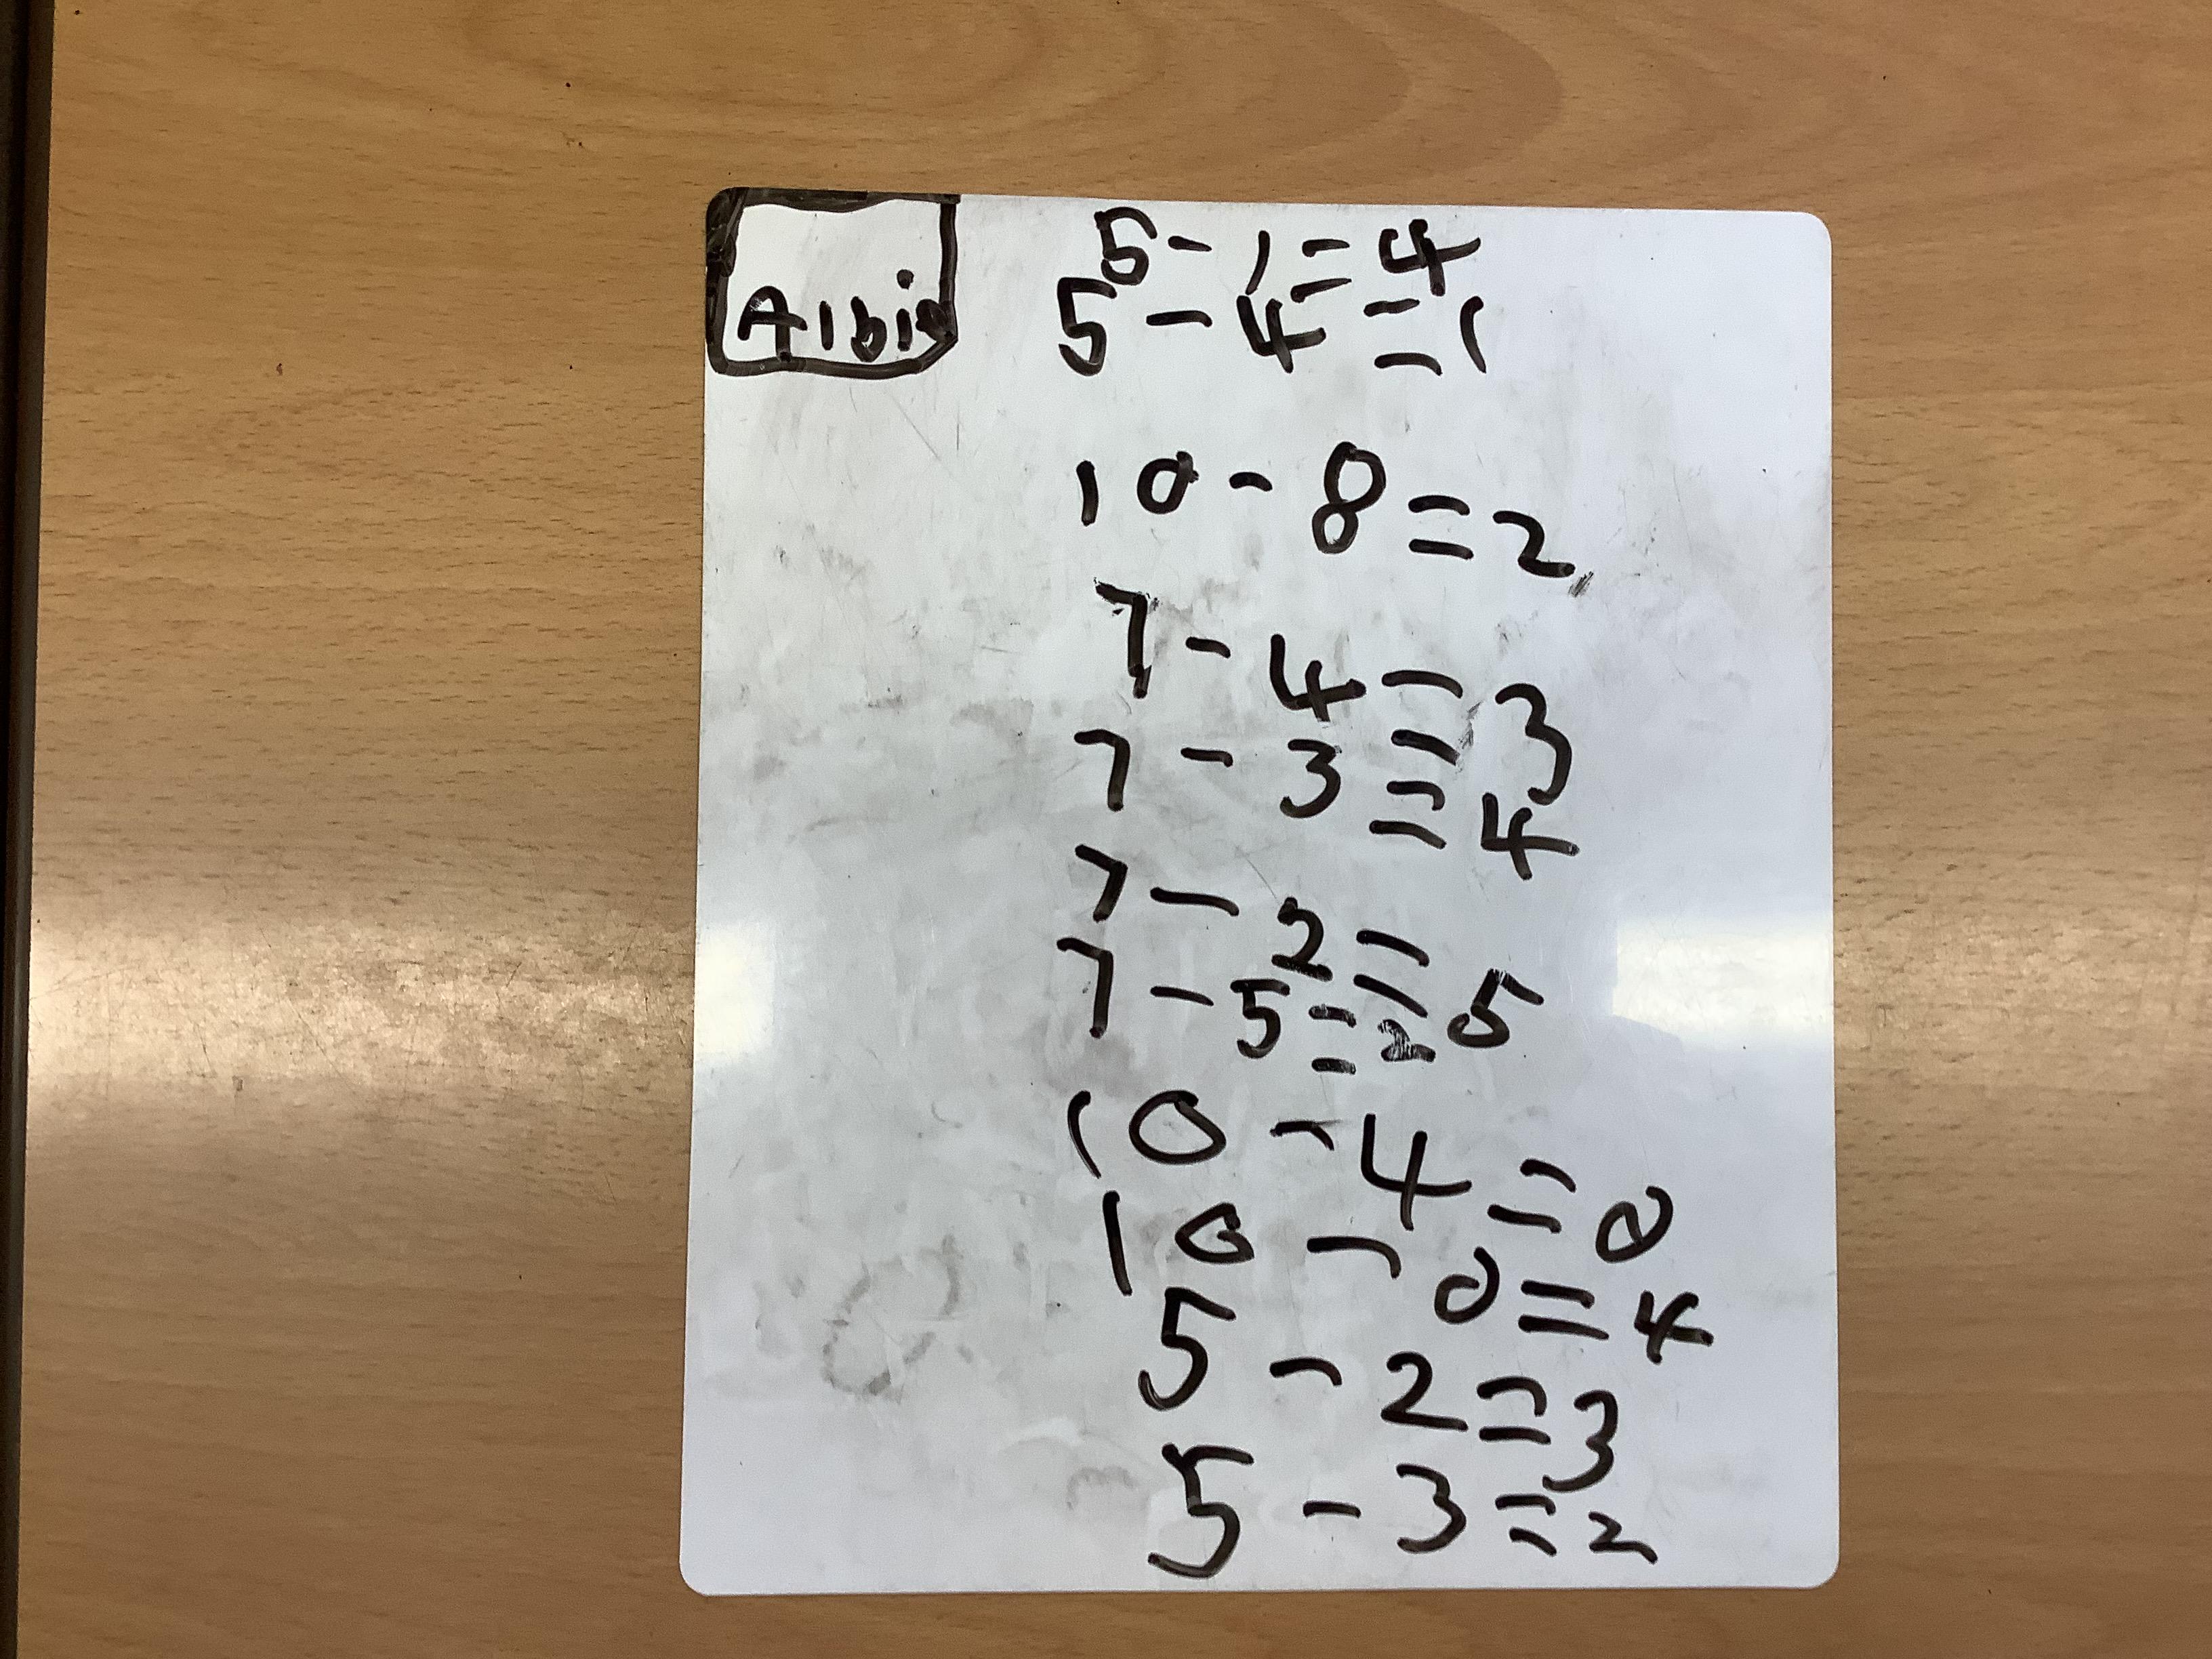 Albie
5-1=4
5-4=1
10-8=2
7-4=3
7-3=4
7-2=5
7-5=2
10-4=0
10-0=4
5-2=3
5-3=2